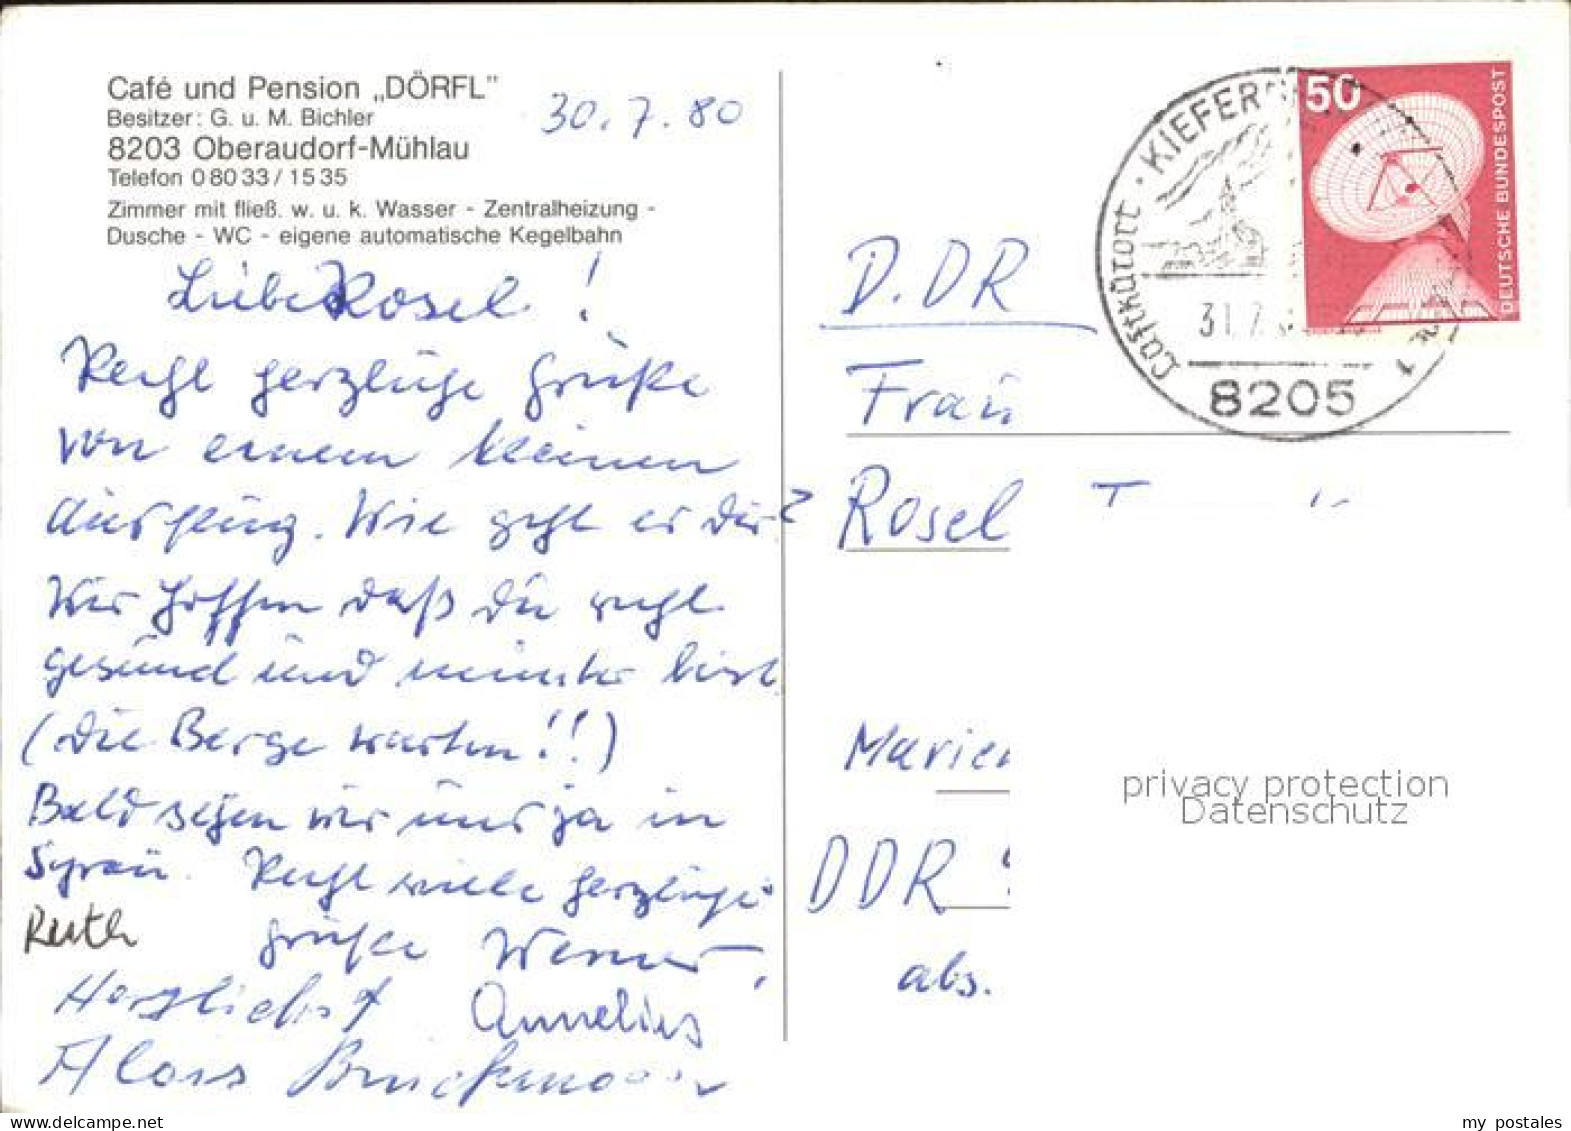 Café und Pension „DÖRFL"
Besitzer: G. u. M. Bichler
8203 Oberaudorf-Mühlau
Telefon 0 80 33 / 15 35
Zimmer mit fließ. w. u. k. Wasser - Zentralheizung -
Dusche - WC - eigene automatische Kegelbahn
30.7.80
Liebe Rosel!
Recht herzliche Grüße
von einem kleinen
Ausflug. Wie geht es Dir?
Wir hoffen daß du recht
gesund und munter bist
(die Berge warten!!)
Bald sehen wir uns ja in
Syrau. Recht viele herzliche
Grüße Werner,
Herzlichst
Alois
50
DEUTSCHE BUNDESPOST
Luftkurort · KIEFER
31.7.
8205
1
D.DR
Frau
Rosel
Marien
DDR
abs.
privacy protection
Datenschutz
delcampe.net
my postales